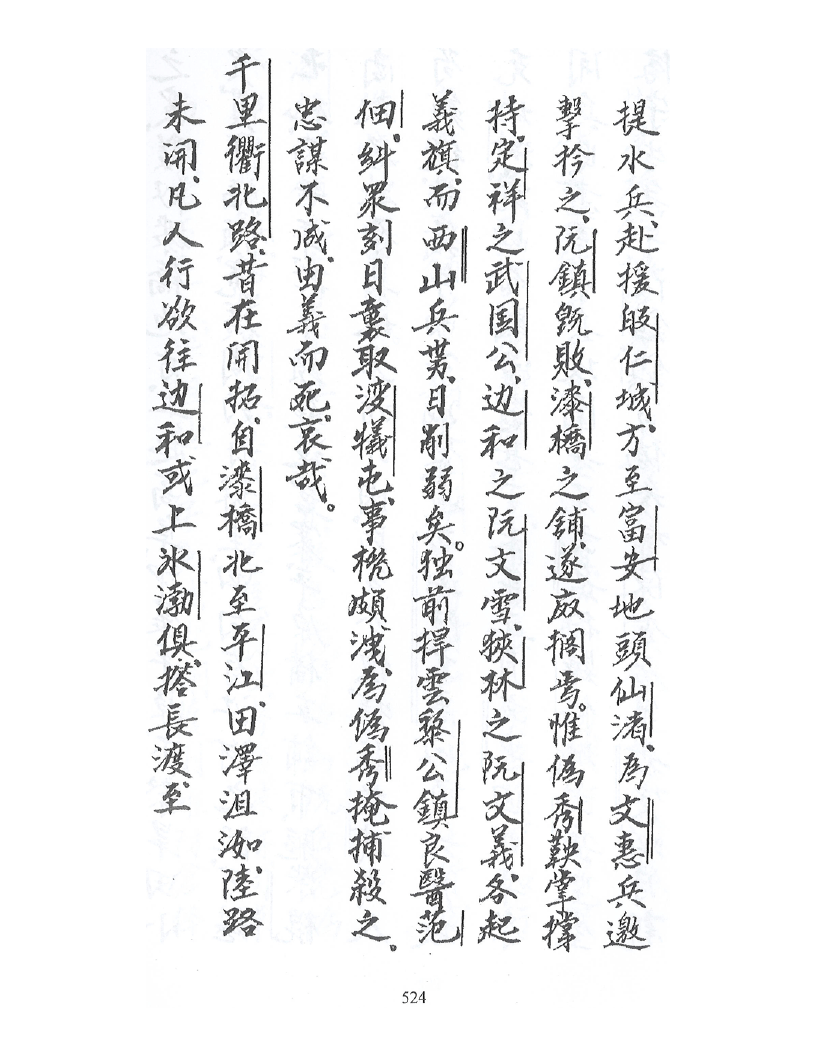 提水兵、赴援皈仁城、方至富安地頭仙渚、為文惠兵邀
擊於之、阮鎮既敗、漆橋之鋪、遂廢擱焉。惟偽秀鞅掌撐
持。定祥之武国公、边和之阮文雪、狹林之阮文義、各起
義旗、而西山兵势、日削弱矣。独前捍雲黎公鎮良醫范
佃、糾眾刻日襲取渡犧屯、事機頗洩、為偽秀掩捕殺之。
忠謀不成、由義而死。哀哉。
千里衢北路、昔在開拓、自漆橋北至平江、田澤沮洳、陸路
未開、凡人行欲往边和或上氷渤俱、搭長渡至
524